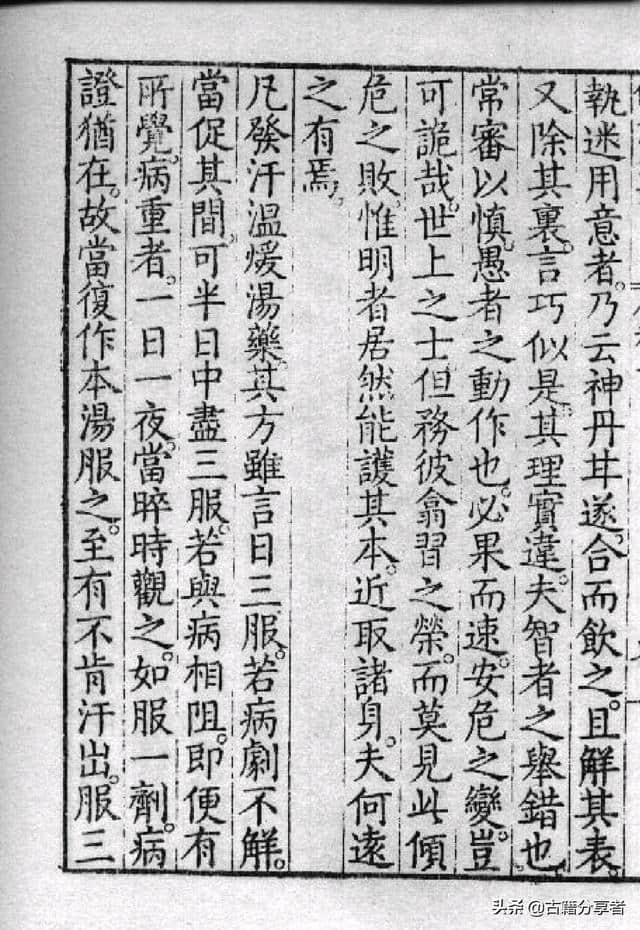 執迷用意者。乃云神丹甘遂。合而飲之。且解其表。
又除其裏。言巧似是。其理實違。夫智者之舉錯也。
常審以慎。愚者之動作也。必果而速。安危之變豈
可詭哉。世上之士但務彼翕習之榮。而莫見此傾
危之敗。惟明者居然能護其本。近取諸身。夫何遠
之有焉。
凡發汗溫煖湯藥。其方雖言日三服。若病劇不解。
當促其間。可半日中盡三服。若與病相阻。即便有
所覺。病重者。一日一夜。當晬時觀之。如服一劑。病
證猶在。故當復作本湯服之。至有不肯汗出。服三
头条 @古籍分享者